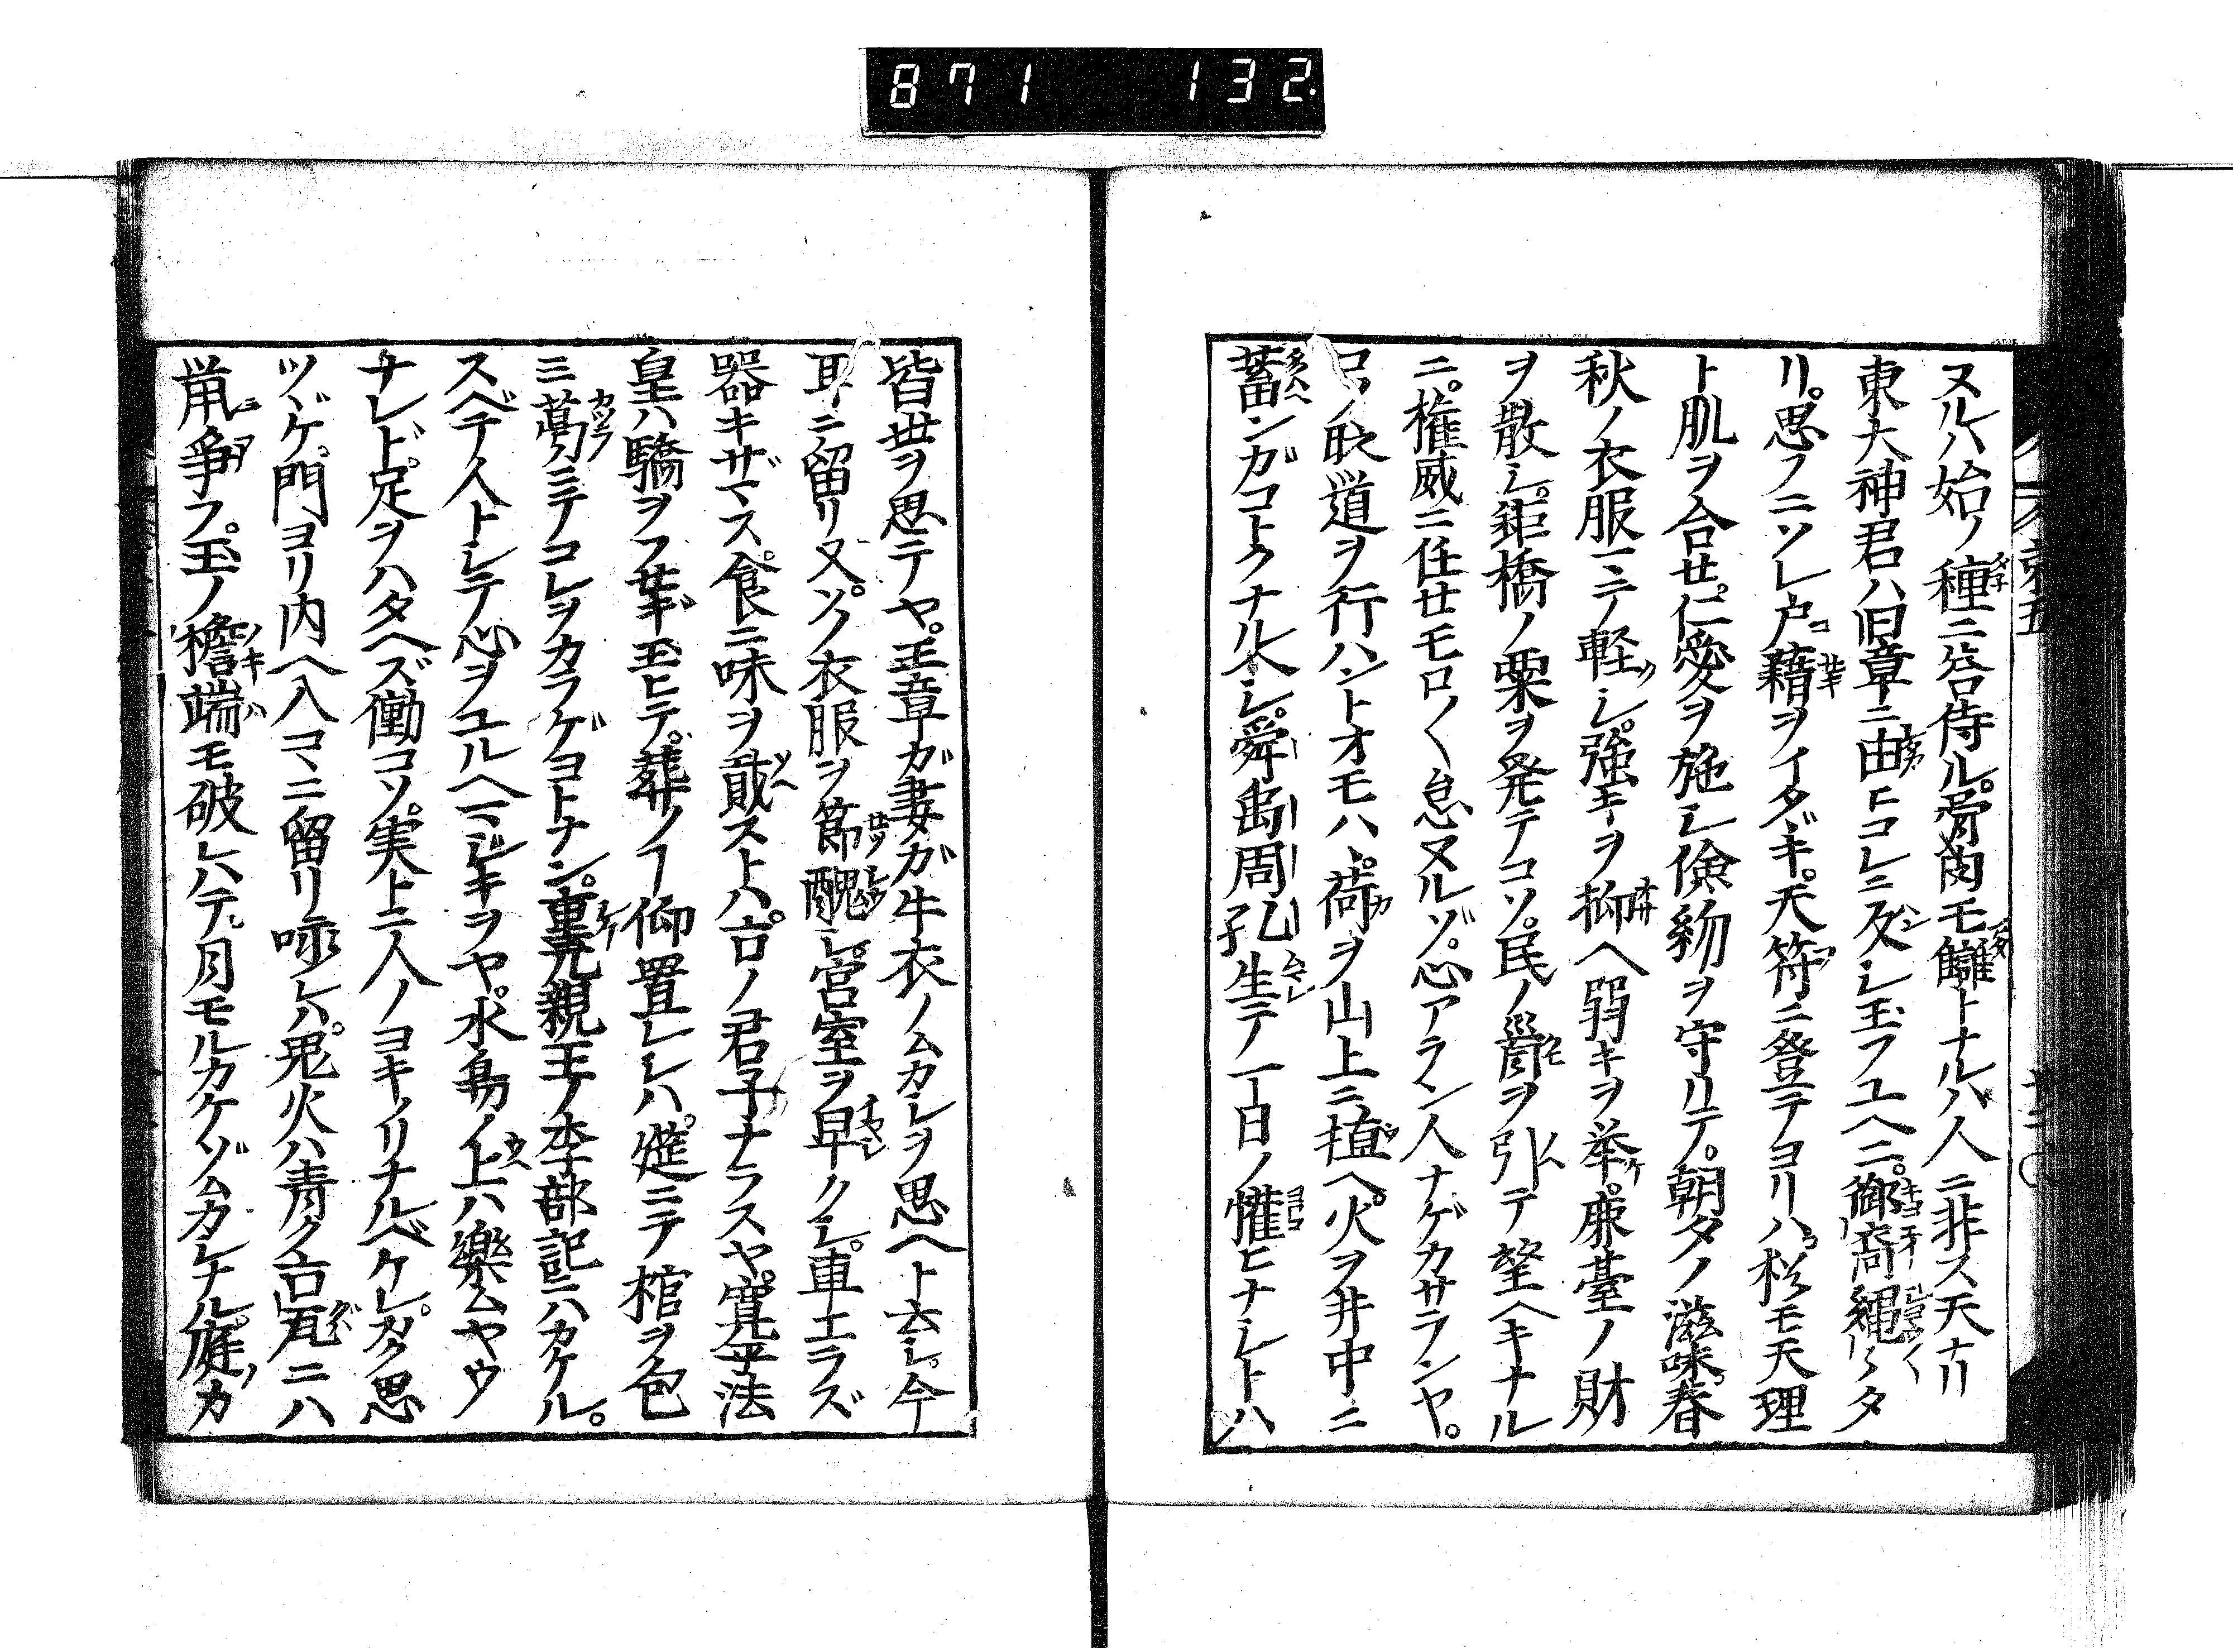 871 132.
ヌルハ始ノ種ニ咎侍ル。骨肉モ讎トナルハ人ニ非ス天ナリ
東大神君ハ旧章ニ由ヒコレニ反シ玉フユヘニ。御裔縄〻タ
リ。思フニソレ戸藉ヲイタヾキ。天符ニ登テヨリハ。杉モ天理
ト肌ヲ合セ。仁愛ヲ施シ倹約ヲ守リテ。朝夕ノ滋味春
秋ノ衣服一ニノ軽シ。強キヲ抑ヘ弱キヲ挙。鹿臺ノ財
ヲ散シ。鉅橋ノ粟ヲ発テコソ。民ノ蜀ヲ引テ望ヘキナル
ニ。権威ニ任せモロ〱怠ヌルゾ。心アラン人ナゲカサランヤ。
ノ政道ヲ行ハントオモハヾ。荷ヲ山上ニ植ヘ。火ヲ井中ニ
蓄ンガコトクナルヘシ。舜禹周孔生テノ一日ノ懼ヒナシトハ
皆世ヲ思テヤ。王章ガ妻ガ牛衣ノムカシヲ思ヘト云シ。今
耳ニ留リ又ソノ衣服ヲ節醜シ。宮室ヲ早クシ。車エラズ
器キザマス。食ニ味ヲ貳ストハ。古ノ君子ナラスヤ。寛平法
皇ハ驕ヲフせギ玉ヒテ。葬ノ仰置レシハ。筵ニテ棺ヲ包
三葛ニテコレヲカラゲヨトナン。重光親王ノ李部記ニハカケル。
スベテ人トシテ心ヲユルヘマジキヲヤ。水鳥ノ上ハ樂ムヤウ
ナレド。足ヲハタヘズ働コソ。実ト二人ノヨキノリナルベケレ。カク思
ツヾケ。門ヨリ内ヘ入コマニ留リ哧レハ。鬼火ハ青ク古瓦ニハ
鼠争フ。玉ノ檐端モ破レハテ。月モルカケゾムカシナル。庭カ